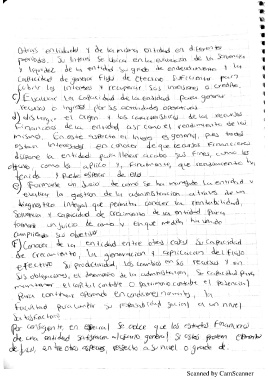 otras entidades y de la misma entidad en diferentes
periodos. Su interés se ubica en la evaluación de la solvencia
y liquidez de la entidad su grado de endeudamiento y la
capacidad de generar flujo de efectivo suficiente para
cubrir los intereses y recuperar sus inversiones o créditos.
c) Evaluar la capacidad de la entidad para generar
recursos o ingresos por sus actividades operativas
d) distinguir el origen y las características de los recursos
financieros de la entidad, así como el rendimiento de los
mismos. En este aspecto el interés es general, pues todos
están interesados en conocer de que recursos financieros
dispone la entidad para llevar a cabo sus fines, como los
como los aplicó y, finalmente, que rendimiento ha
tenido y puede esperar de ello
e) Formarse un juicio de como se ha manejado la entidad y
evaluar la gestión de la administración a través de un
diagnóstico integral que permita conocer la rentabilidad,
solvencia y capacidad de crecimiento de la entidad para
formar un juicio de como y en que medida ha venido
cumpliendo sus objetivos
f) Conocer de la entidad entre otras cosas su capacidad
de crecimiento, la generación y aplicación del flujo
efectivo su productividad, los cambios en los recursos y en
sus obligaciones, el desempeño de la administración, su capacidad para
mantener el capital contable o patrimonio contable el potencial
para continuar operando en condiciones normales, la
facilidad para cumplir su responsabilidad social a un nivel
satisfactorio
Por consiguiente, en especial se considera que los estados financieros
de una entidad satisfacen al usuario general si estos proveen
de juicio, entre otros aspectos, respecto a su nivel o grado de.
Scanned by CamScanner